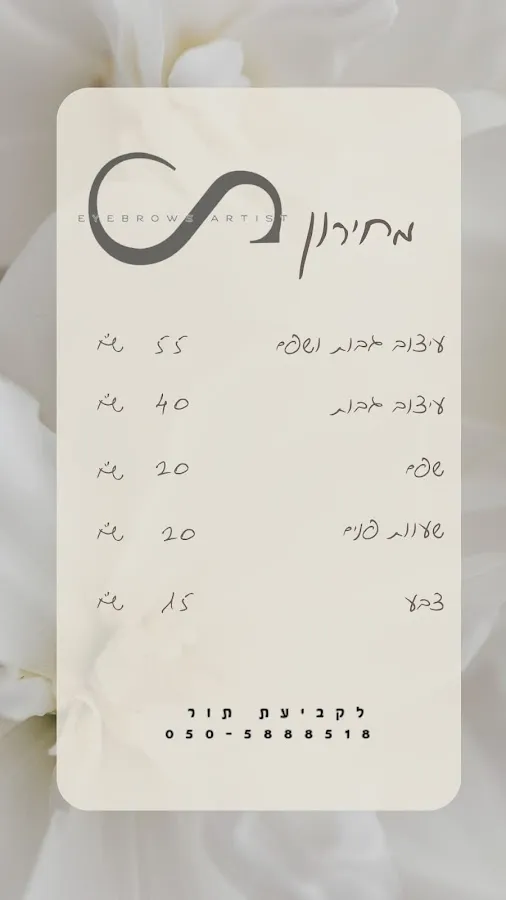 EYEBROWS ARTIST
מחירון
עיצוב גבות ושפם 55 ש״ח
עיצוב גבות 40 ש״ח
שפם 20 ש״ח
שעוות פנים 20 ש״ח
צבע 15 ש״ח
לקביעת תור
050-5888518